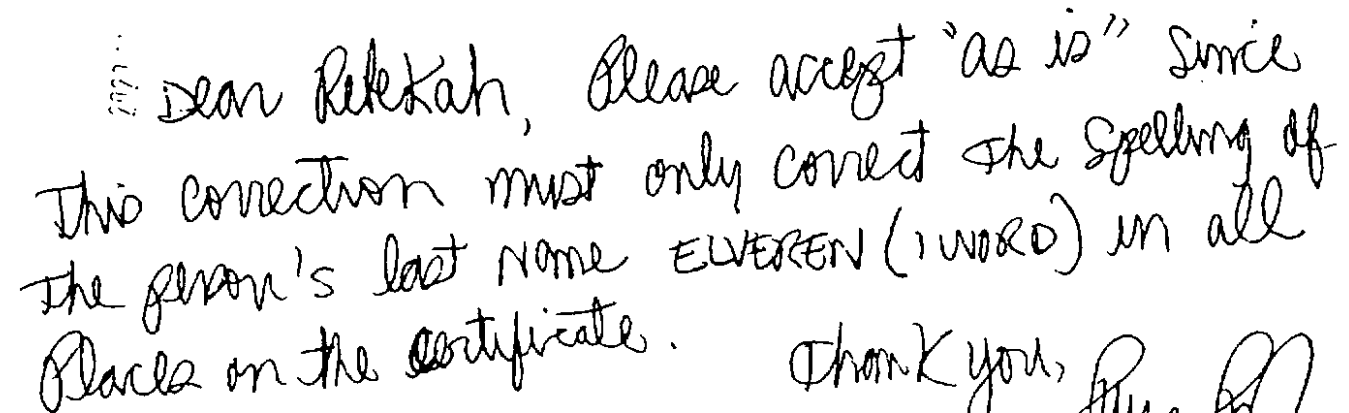 Dear Rebekah, Please accept "as is" since
This correction must only correct the spelling of
the person's last name ELVEREN (1 WORD) in all
Places on the certificate.
Thank you,